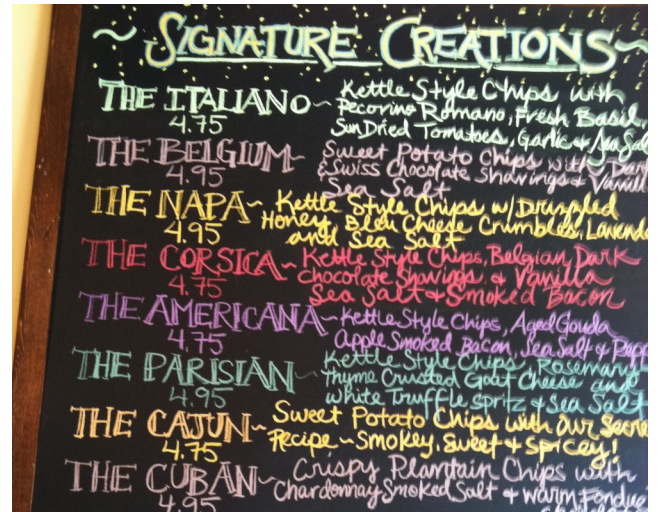 ~ SIGNATURE CREATIONS ~
THE ITALIANO~ Kettle Style Chips with
4.75 Pecorino Romano, Fresh Basil,
Sun Dried Tomatoes, Garlic & Sea Sal
THE BELGIUM~ Sweet Potato Chips with Dark
4.95 & Swiss Chocolate Shavings & Vanill
Sea Salt
THE NAPA~ Kettle Style Chips w/Drizzled
4.95 Honey, Bleu Cheese Crumbles, Lavende
and Sea Salt
THE CORSICA~ Kettle Style Chips, Belgian Dark
4.75 Chocolate Shavings & Vanilla
Sea Salt & Smoked Bacon
THE AMERICANA~ Kettle Style Chips, Aged Gouda
4.75 Apple Smoked Bacon, Sea Salt & Pepp
THE PARISIAN~ Kettle Style Chips, Rosemary
4.95 Thyme Crusted Goat Cheese and
White Truffle Spritz & Sea Salt
THE CAJUN~ Sweet Potato Chips with Our Secre
4.75 Recipe ~ Smokey, Sweet & Spicey!
THE CUBAN~ Crispy Plantain Chips with
4.95 Chardonnay Smoked Salt & Warm Fondue